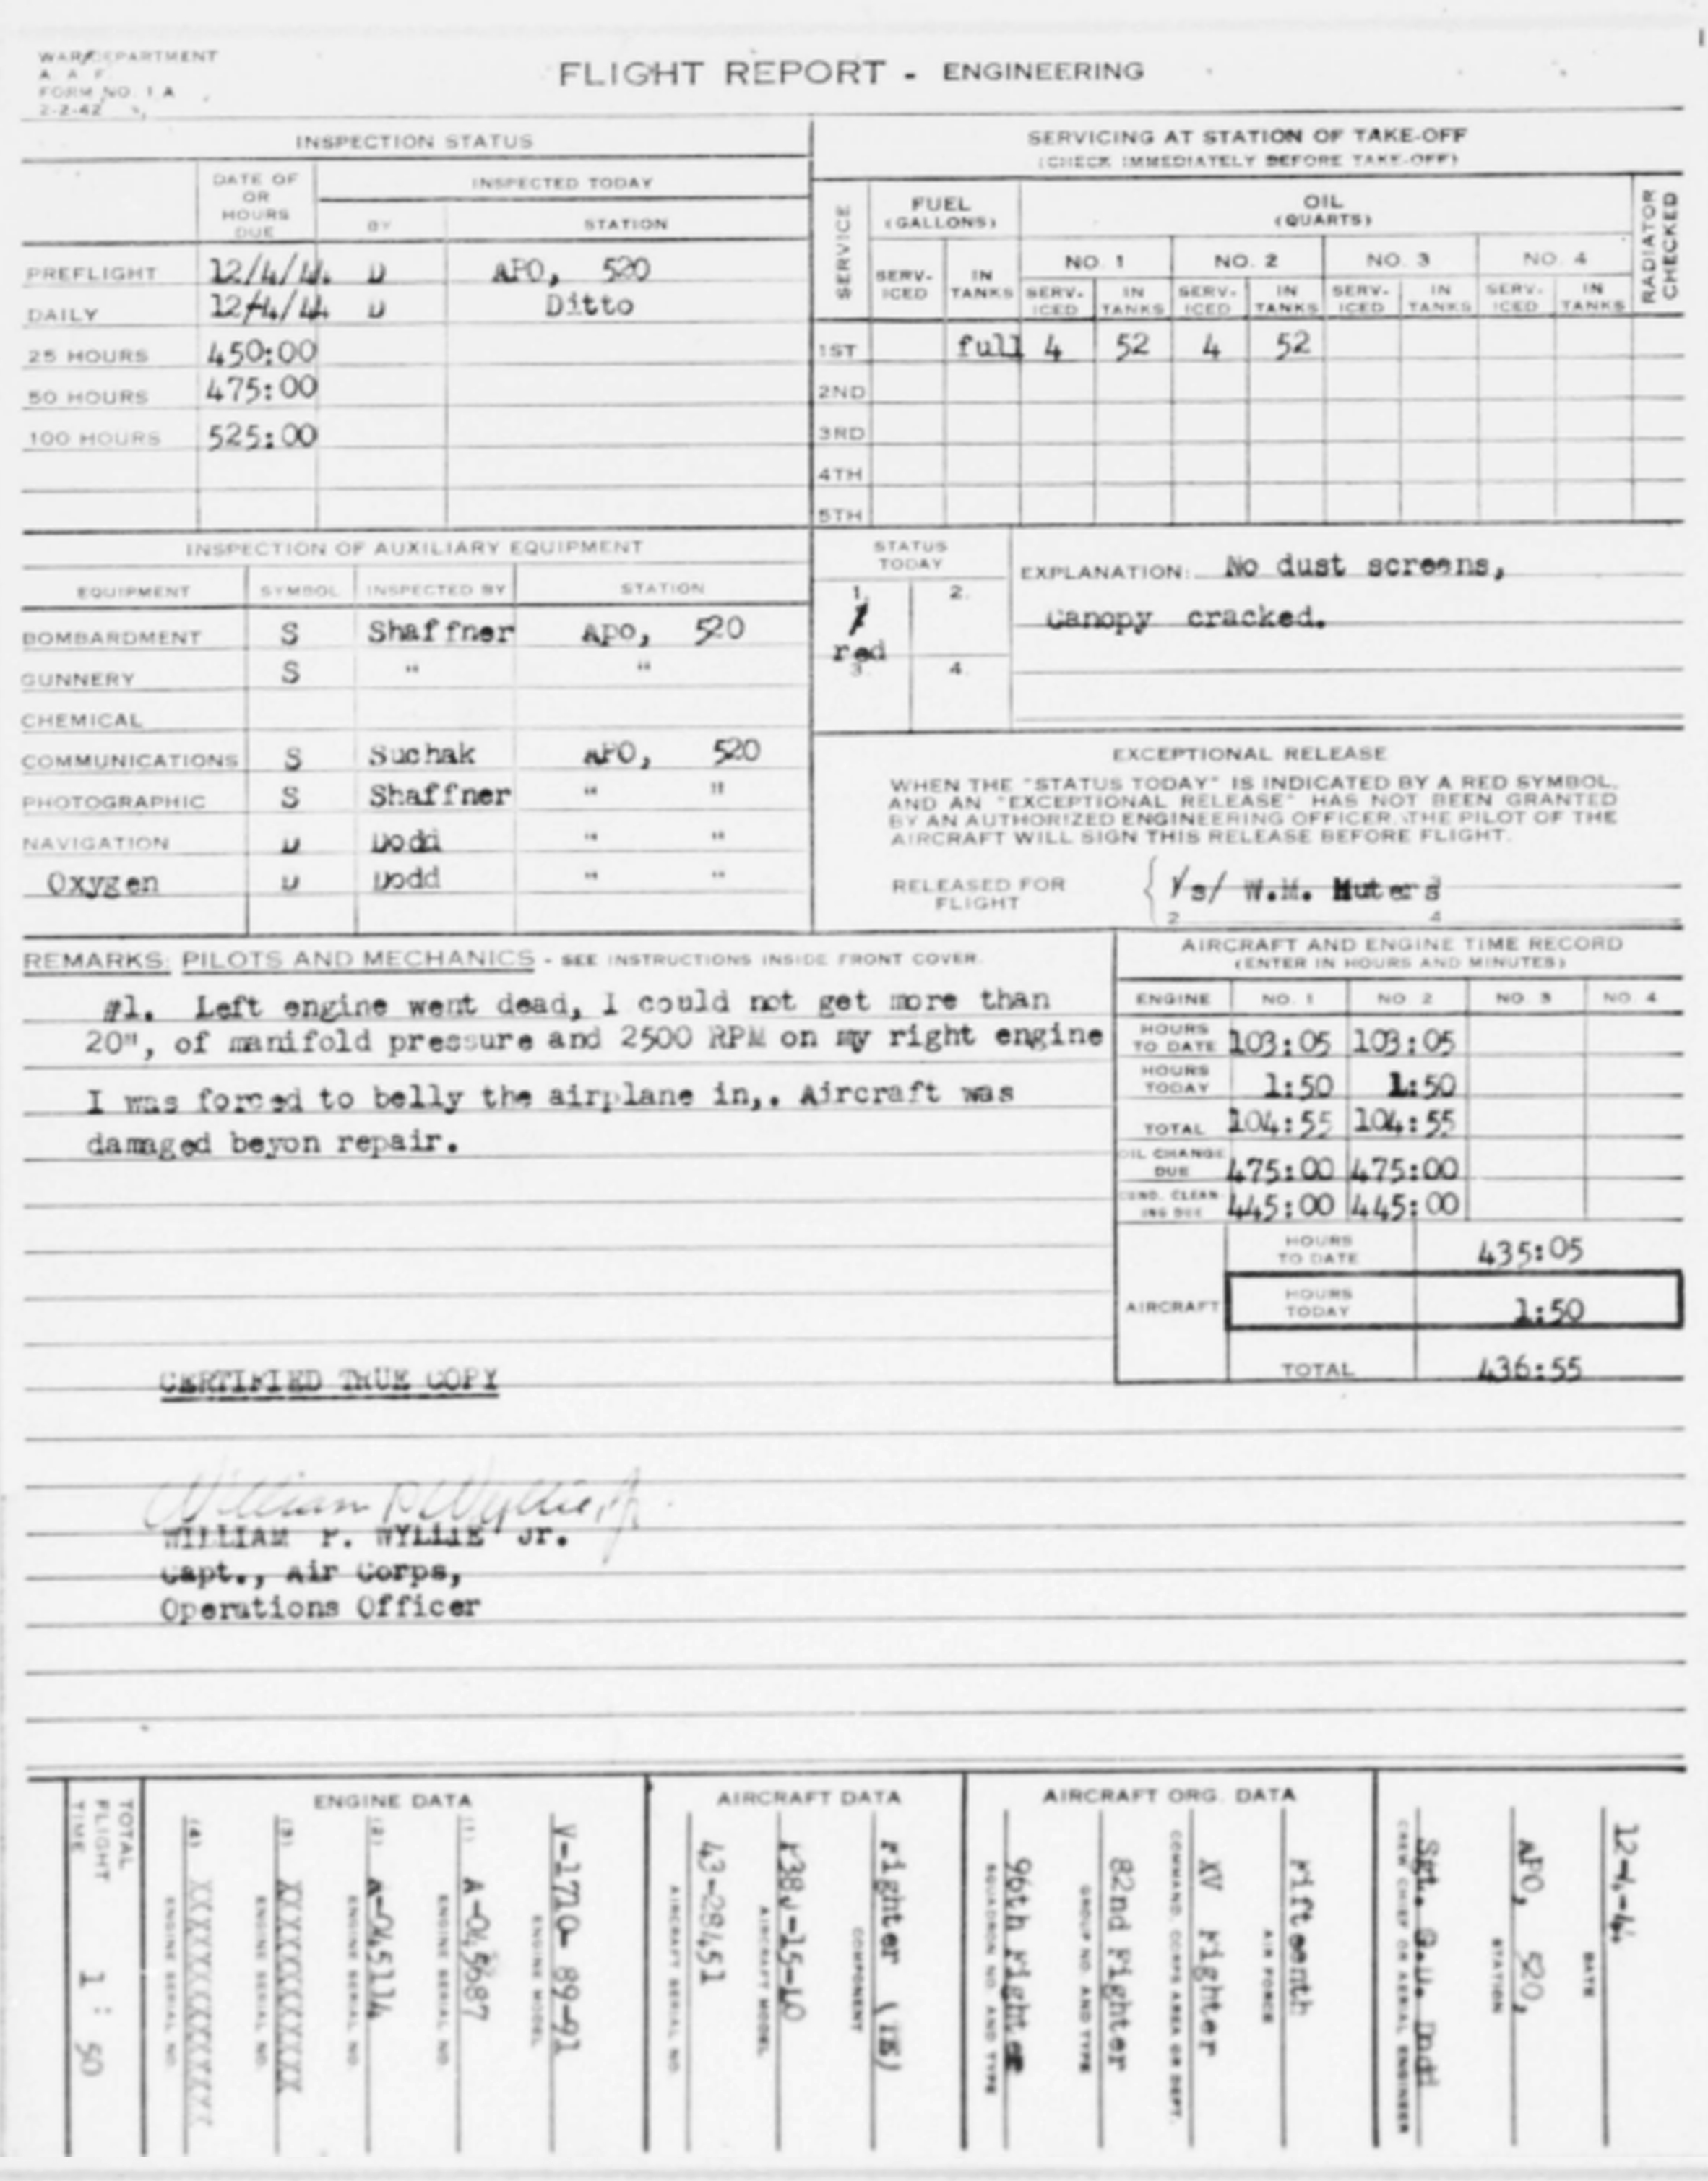 WAR DEPARTMENT
A A F
FORM NO. 1 A
2-2-42
FLIGHT REPORT - ENGINEERING
INSPECTION STATUS
DATE OF OR HOURS DUE
INSPECTED TODAY
BY STATION
PREFLIGHT 12/4/44 D APO, 520
DAILY 12/4/44 D Ditto
25 HOURS 450:00
50 HOURS 475:00
100 HOURS 525:00
SERVICING AT STATION OF TAKE-OFF
(CHECK IMMEDIATELY BEFORE TAKE-OFF)
SERVICE
FUEL (GALLONS)
OIL (QUARTS)
RADIATOR CHECKED
NO. 1 NO. 2 NO. 3 NO. 4
SERV-ICED IN TANKS SERV-ICED IN TANKS SERV-ICED IN TANKS SERV-ICED IN TANKS SERV-ICED IN TANKS
1ST full 4 52 4 52
2ND
3RD
4TH
5TH
INSPECTION OF AUXILIARY EQUIPMENT
EQUIPMENT SYMBOL INSPECTED BY STATION
BOMBARDMENT S Shaffner Apo, 520
GUNNERY S " "
CHEMICAL
COMMUNICATIONS S Suchak APO, 520
PHOTOGRAPHIC S Shaffner " "
NAVIGATION D Dodd " "
Oxygen D Dodd " "
STATUS TODAY
1. / red
2.
3.
4.
EXPLANATION: No dust screens,
Canopy cracked.
EXCEPTIONAL RELEASE
WHEN THE "STATUS TODAY" IS INDICATED BY A RED SYMBOL,
AND AN "EXCEPTIONAL RELEASE" HAS NOT BEEN GRANTED
BY AN AUTHORIZED ENGINEERING OFFICER, THE PILOT OF THE
AIRCRAFT WILL SIGN THIS RELEASE BEFORE FLIGHT.
RELEASED FOR FLIGHT
/s/ W.M. Muters
2 4
REMARKS: PILOTS AND MECHANICS - SEE INSTRUCTIONS INSIDE FRONT COVER.
#1. Left engine went dead, I could not get more than
20", of manifold pressure and 2500 RPM on my right engine
I was forced to belly the airplane in,. Aircraft was
damaged beyon repair.
AIRCRAFT AND ENGINE TIME RECORD
(ENTER IN HOURS AND MINUTES)
ENGINE NO. 1 NO 2 NO. 3 NO 4
HOURS TO DATE 103:05 103:05
HOURS TODAY 1:50 1:50
TOTAL 104:55 104:55
OIL CHANGE DUE 475:00 475:00
CUNO. CLEAN-ING DUE 445:00 445:00
AIRCRAFT
HOURS TO DATE 435:05
HOURS TODAY 1:50
TOTAL 436:55
CERTIFIED TRUE COPY
William P Wyllie, Jr.
WILLIAM P. WYLLIE Jr.
Capt., Air Corps,
Operations Officer
TOTAL FLIGHT TIME 1 : 50
ENGINE DATA
(4) XXXXXXXXXXXXX ENGINE SERIAL NO.
(3) XXXXXXXXXXX ENGINE SERIAL NO.
(2) A-045114 ENGINE SERIAL NO.
(1) ENGINE SERIAL NO.
V-1710- 89-91 ENGINE MODEL
AIRCRAFT DATA
43-28451 AIRCRAFT SERIAL NO.
P38J-15-LO AIRCRAFT MODEL
Fighter (TE) COMPONENT
AIRCRAFT ORG. DATA
96th Fighter SQUADRON NO. AND TYPE
82nd Fighter GROUP NO. AND TYPE
XV Fighter COMMAND, CORPS AREA OR DEPT.
Fifteenth AIR FORCE
Sgt. Dodd CREW CHIEF OR AERIAL ENGINEER
APO, 520, STATION
12-4-44 DATE